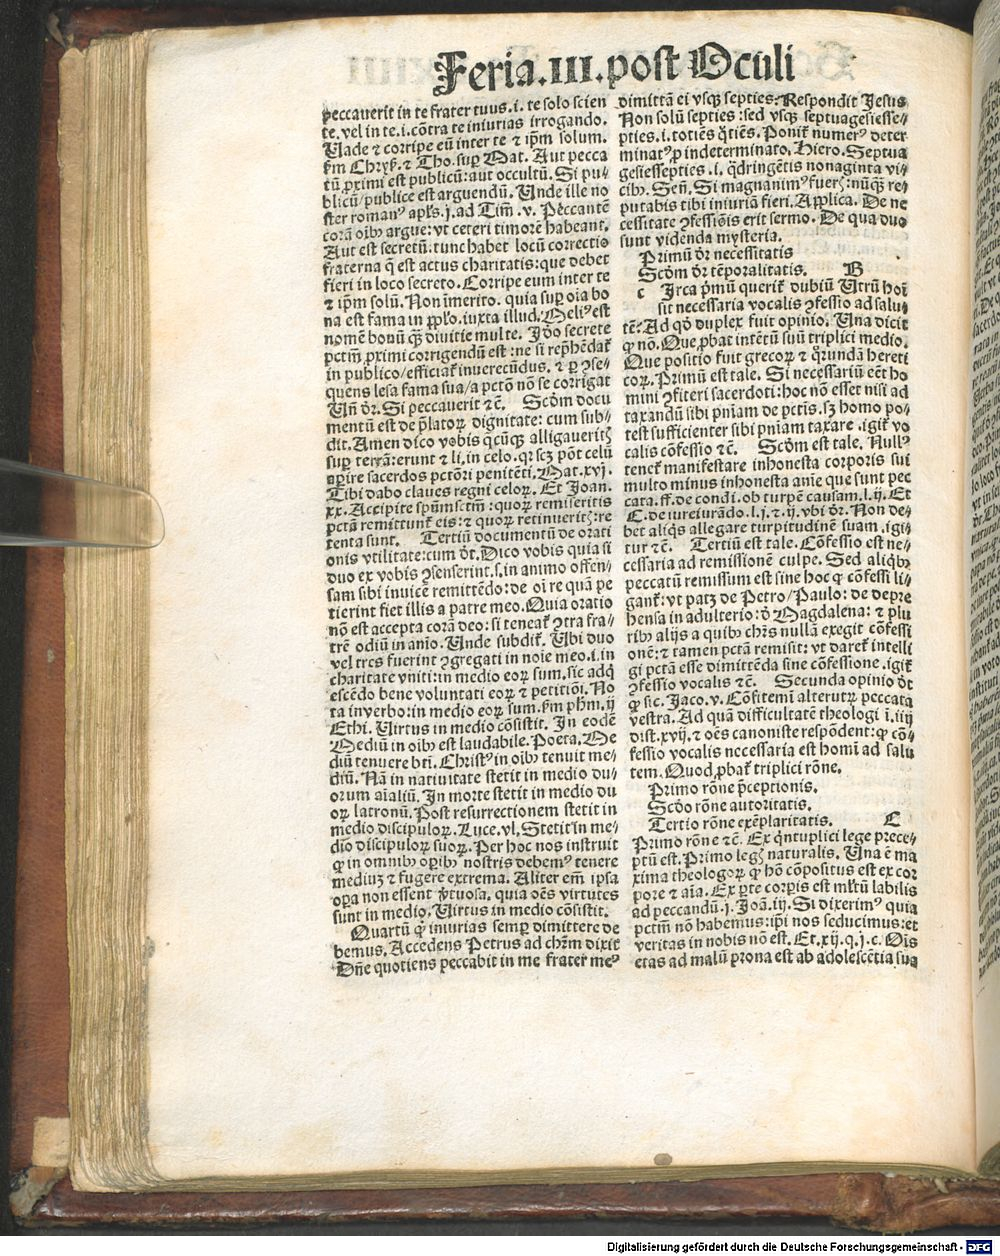 Feria.III.post Oculi
peccauerit in te frater tuus.i. te solo scien
te.vel in te.i.cōtra te iniurias irrogando.
Uade ⁊ corripe eū inter te ⁊ ip̄m solum.
s̄m Chryſ.⁊ Tho.suꝑ Mat. Aut pecca
tū ꝓximi est publicū:aut occultū. Si pu⸗
blicū/publice est arguendū. Unde ille no
ster romanꝰ apl̄s.j.ad Tim̄.v. Peccantē
corā oībꝰ argue:vt ceteri timorē habeant.
Aut est secretū.tunc habet locū correctio
fraterna q̄ est actus charitatis:que debet
fieri in loco secreto.Corripe eum inter te
⁊ ip̄m solū.Non īmerito. quia suꝑ oīa bo
na est fama in ꝓpl̄o.iuxta illud.Meliꝰ est
nomē bonū q̄ꝫ diuitie multe. Jdo secrete
pctm̄ ꝓximi corrigendū est:ne si rep̄hēdat̄
in publico/efficiat̄ inuerecūdus. ⁊ ꝑ ꝯse⸗
quens lesa fama sua/a pctō nō se corrigat
Un̄ dr̄. Si peccauerit ⁊c̄. Scd̄m docu
mentū est de p̄latoꝝ dignitate: cum sub⸗
dit.Amen dico vobis q̄cūqꝫ alligaueritꝭ
suꝑ terrā:erunt ⁊ li.in celo.qꝛ scꝫ pōt celū
aꝑire sacerdos pctōri penitēti.Mat.xvj.
Tibi dabo claues regni celoꝝ. Et Joan.
xx.Accipite spūmsctm̄:quoꝝ remiseritis
pctā remittunt̄ eis:⁊ quoꝝ retinueritꝭ:re
tenta sunt. Tertiū documentū de orati
onis vtilitate:cum dr̄.Dico vobis quia si
duo ex vobis ꝯsenserint.s.in animo offen⸗
sam sibi inuicē remittēdo:de oī re quā pe
tierint fiet illis a patre meo.Quia oratio
nō est accepta corā deo:si teneat̄ ꝯtra fra⸗
trē odiū in aīo. Unde subdit̄. Ubi duo
vel tres fuerint ꝯgregati in noīe meo.i.in
charitate vniti:in medio eoꝝ sum.sic adq̄
escēdo bene voluntati eoꝝ ⁊ petitiōi. No
ta in verbo:in medio eoꝝ sum.s̄m ph̄m.ij
Ethi. Uirtus in medio cōsistit. In eodē
Mediū in oībꝰ est laudabile.Poeta.Me
diū tenuere bt̄i. Christꝰ in oībꝰ tenuit me⸗
diū. Nā in natiuitate stetit in medio du⸗
orum aīaliū. In morte stetit in medio du
oꝝ latronū. Post resurrectionem stetit in
medio discipuloꝝ.Luce.vl. Stetit in me⸗
dio discipuloꝝ suoꝝ. Per hoc nos instruit
ꝙ in omnibꝰ oꝑibꝰ nostris debemꝰ tenere
mediuꝫ ⁊ fugere extrema. Aliter em̄ ipsa
oꝑa non essent v̄tuosa. quia oēs virtutes
sunt in medio.Uirtus in medio cōsistit.
Quartū ꝙ iniurias semꝑ dimittere de
bemus.Accedens Petrus ad chr̄m dixit
Dn̄e quotiens peccabit in me frater meꝰ
dimittā ei vsqꝫ septies:Respondit Jesus
Non solū septies:sed vsqꝫ septuagesiesse⸗
pties.i.totiēs q̄tiēs. Ponit̄ numerꝰ deter
minatꝰ ꝓ indeterminato. Hiero. Septua
gesiessepties.i. q̄dringētis nonaginta vi⸗
cibꝰ. Sen̄. Si magnanimꝰ fuerꝭ:nūqꝫ re⸗
putabis tibi iniuriā fieri. Applica. De ne
cessitate ꝯfessiōis erit sermo. De qua duo
sunt videnda mysteria.
Primū dr̄ necessitatis
Scd̄m dr̄ tēporalitatis. B
c Jrca p̄mū querit̄ dubiū Utrū hoī
sit necessaria vocalis ꝯfessio ad salu
tē:Ad qd̄ duplex fuit opinio. Una dicit
ꝙ nō. Que ꝓbat intētū suū triplici medio.
Que positio fuit grecoꝝ ⁊ q̄rundā hereti
coꝝ. Primū est tale. Si necessariū eēt ho
mini ꝯfiteri sacerdoti:hoc nō esset nisi ad
taxandū sibi pn̄iam de pctīs.sꝫ homo po⸗
test sufficienter sibi pn̄iam taxare.igit̄ vo
calis cōfessio ⁊c̄. Scd̄m est tale. Nullꝰ
tenet̄ manifestare inhonesta corporis sui
multo minus inhonesta anīe que sunt pec
cata.ff.de condi.ob turpē causam.l.ij. Et
C.de iureiurādo.l.j.⁊.ij.vbi dr̄. Non de⸗
bet aliqs̄ allegare turpitudinē suam.igi⸗
tur ⁊c̄. Tertiū est tale. Cōfessio est ne⸗
cessaria ad remissionē culpe. Sed aliqbꝰ
peccatū remissum est sine hoc ꝙ cōfessi li⸗
gant̄:vt patꝫ de Petro/Paulo: de depre
hensa in adulterio:d̄ Magdalena: ⁊ plu
ribꝰ alijs a quibꝰ chr̄s nullā exegit cōfessi
onē:⁊ tamen pctā remisit: vt daret̄ intelli
gi pctā esse dimittēda sine cōfessione.igit̄
ꝯfessio vocalis ⁊c̄. Secunda opinio dt̄
ꝙ sic. Jaco.v. Cōfitemī alterutꝝ peccata
vestra. Ad quā difficultatē theologi ī.iiij
dist.xvij.⁊ oēs canoniste respōdent:ꝙ cō⸗
fessio vocalis necessaria est homī ad salu
tem.Quod ꝓbat̄ triplici rōne.
Primo rōne p̄ceptionis.
Scdo rōne autoritatis.
Tertio rōne exēplaritatis. C
Primo rōne ⁊c̄. Ex q̄ntuplici lege prece⸗
ptū est.Primo legꝭ naturalis. Una ē ma
xima theologoꝝ ꝙ hō cōpositus est ex cor
pore ⁊ aīa.Ex ꝑte corꝑis est ml̄tū labilis
ad peccandū.j.Joā.iij. Si dixerimꝰ quia
pctm̄ nō habemus:ip̄i nos seducimus:et
veritas in nobis nō est.Et.xij.q.j.c. Oīs
etas ad malū prona est ab adolescētia sua
Digitalisierung gefördert durch die Deutsche Forschungsgemeinschaft - DFG